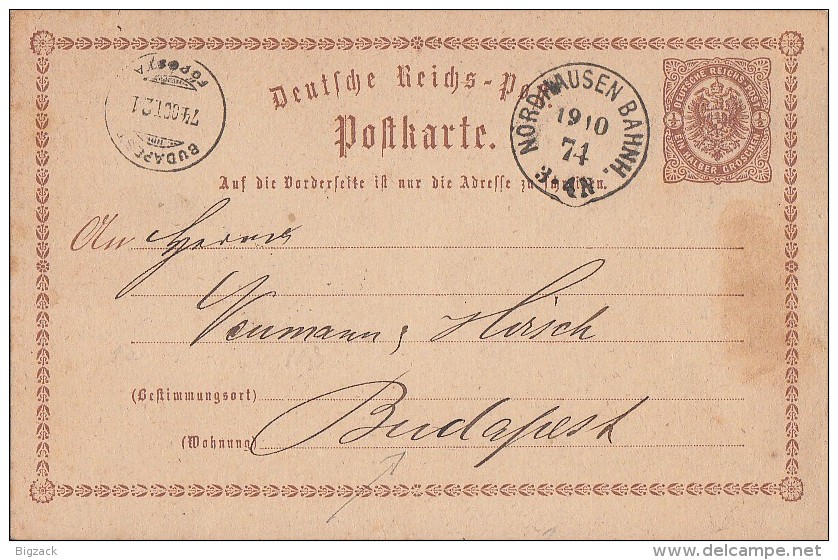 Deutsche Reichs-Post
Postkarte.
Auf die Vorderseite ist nur die Adresse zu schreiben.
BUDAPEST
74 OCT 21
FŐPOSTA
NORDHAUSEN BAHNH.
19 10
74
3-4 N
DEUTSCHE REICHS-POST
½ ½
EIN HALBER GROSCHEN
An Herren
Neumann & Hirsch
(Bestimmungsort) Budapest
(Wohnung)
Bigzack
delcampe.net